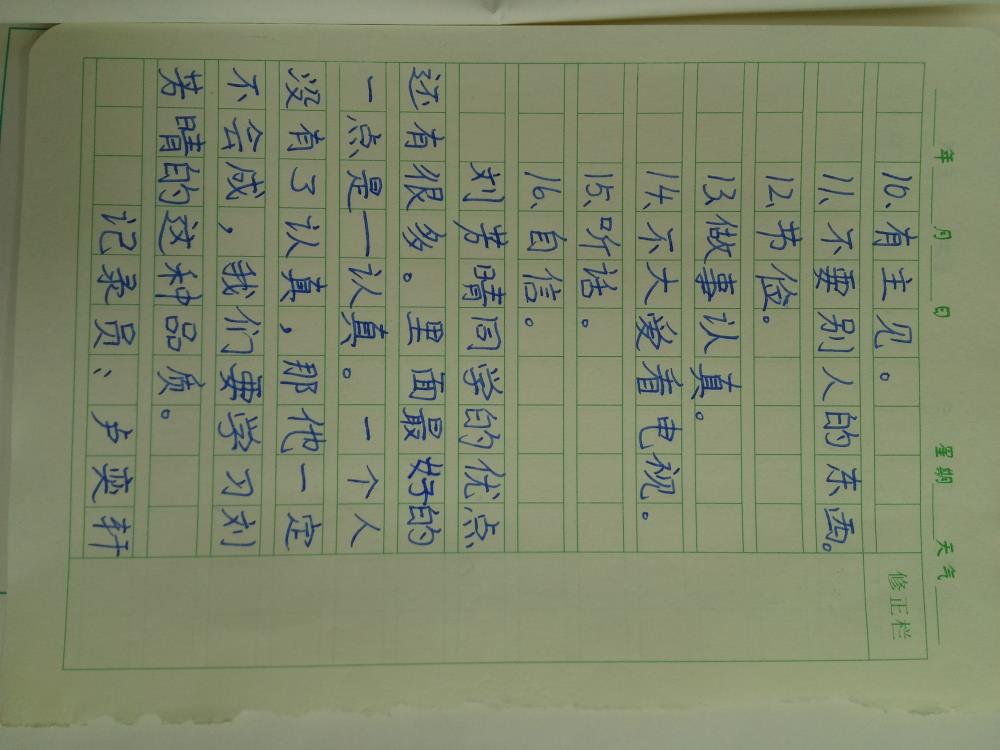 年 月 日 星期 天气
修正栏
10、有主见。
11、不要别人的东西。
12、节俭。
13、做事认真。
14、不大爱看电视。
15、听话。
16、自信。
刘芳晴同学的优点
还有很多。里面最好的
一点是一认真。一个人
没有了认真，那他一定
不会成，我们要学习刘
芳晴的这种品质。
记录员：卢奕轩